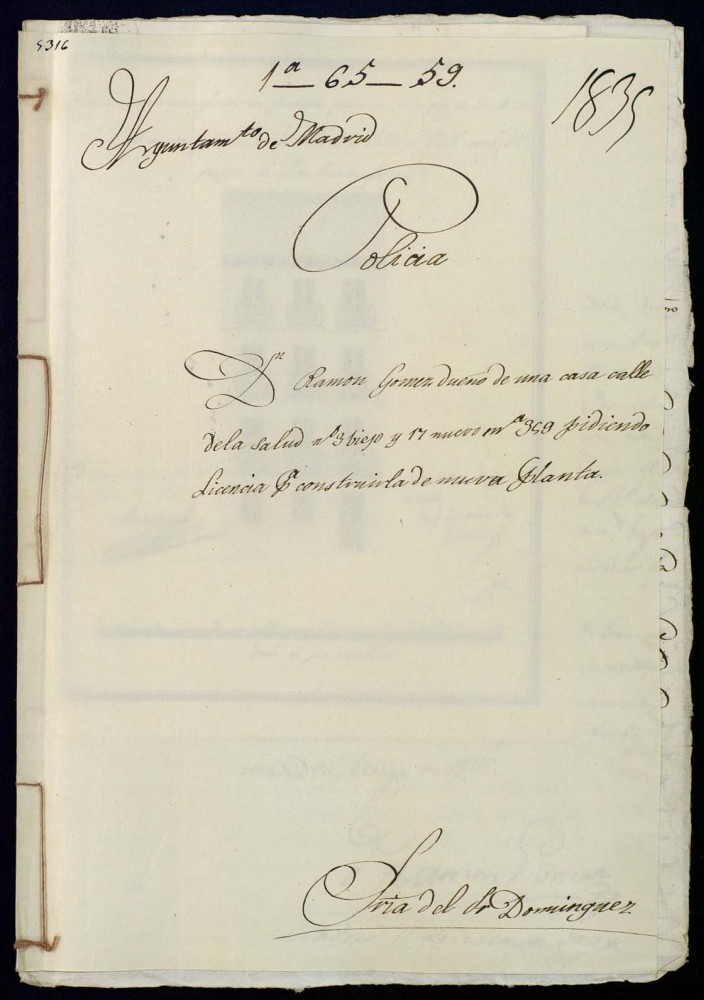 5316
1ª — 65 — 59.
1835
Ayuntamto de Madrid
Policia
Dn Ramon Gomez dueño de una casa calle
dela Salud nº 3 biejo y 17 nuevo mª 359 pidiendo
Licencia pª construirla de nueva planta.
Sria del Sr Dominguez